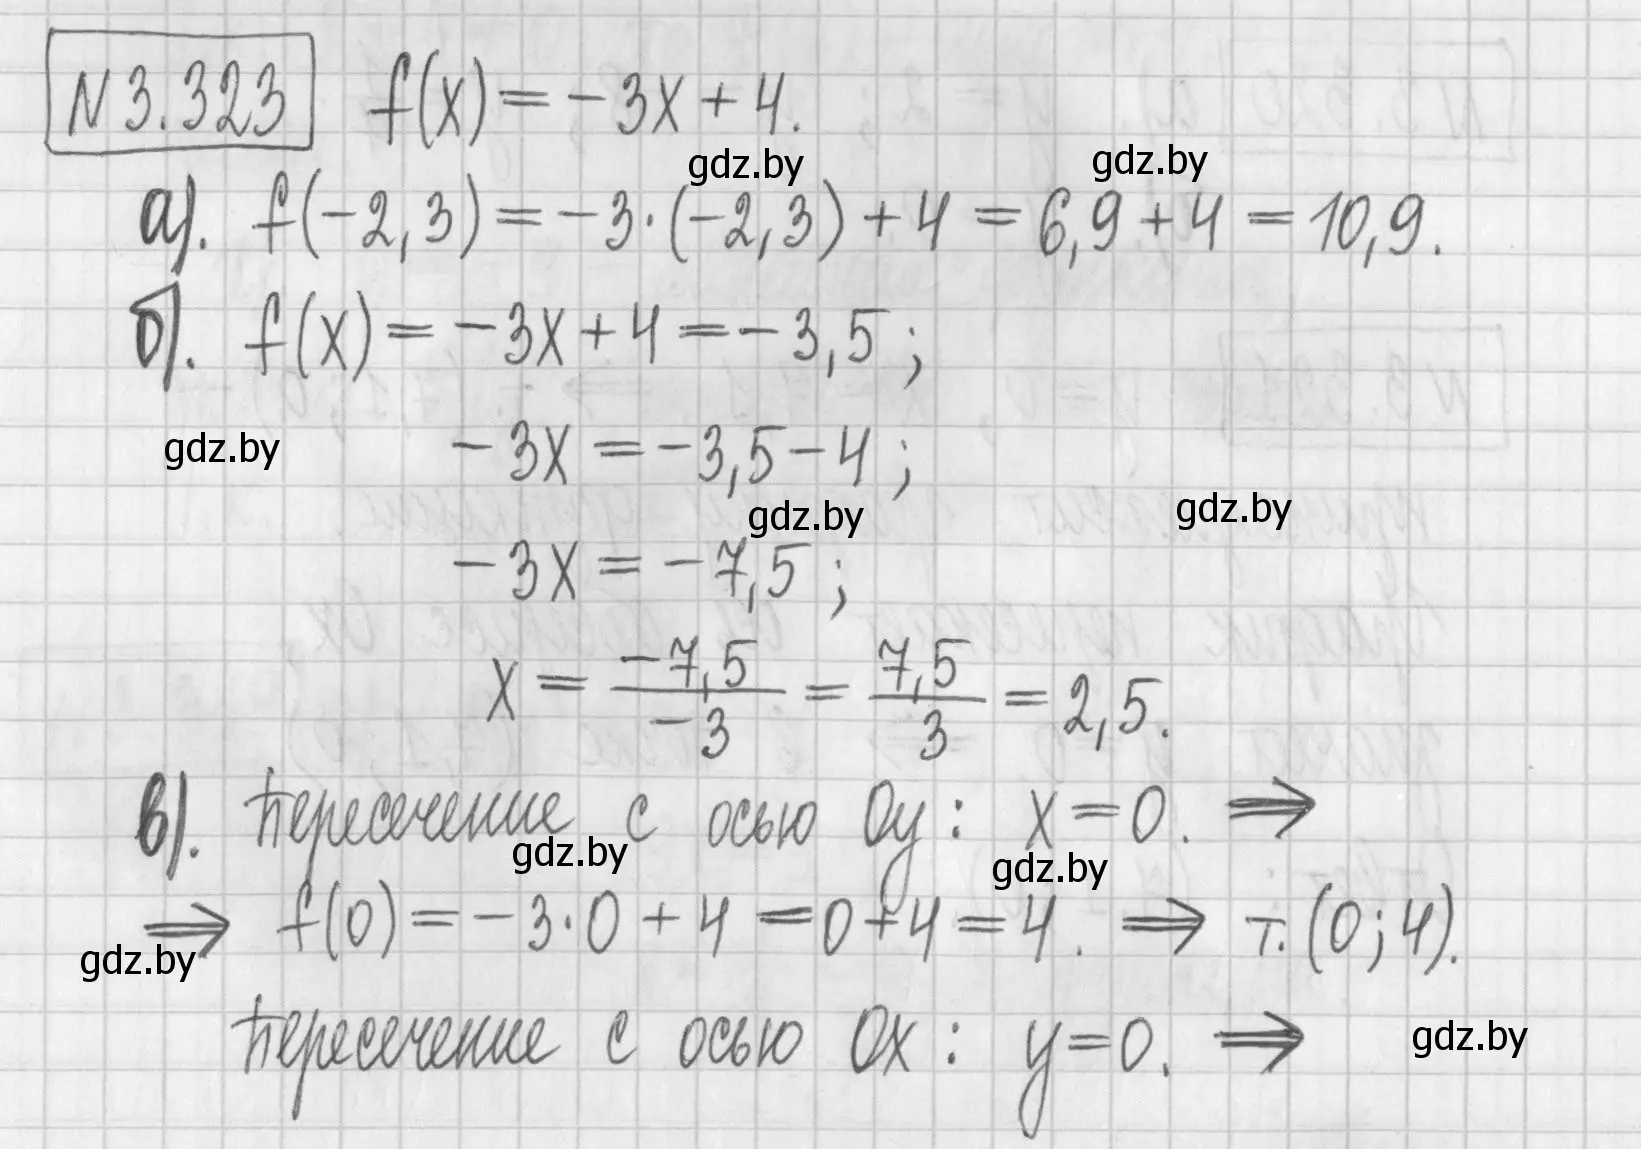 N 3.323 f(x) = -3x + 4.
gdz.by gdz.by
а). f(-2,3) = -3·(-2,3) + 4 = 6,9 + 4 = 10,9.
б). f(x) = -3x + 4 = -3,5;
gdz.by -3x = -3,5 - 4;
gdz.by gdz.by
-3x = -7,5;
x = -7,5/-3 = 7,5/3 = 2,5.
в). Пересечение с осью Oy: x = 0. ⇒
gdz.by gdz.by
⇒ f(0) = -3·0 + 4 = 0 + 4 = 4. ⇒ т. (0; 4).
gdz.by
Пересечение с осью Ox: y = 0. ⇒ gdz.by